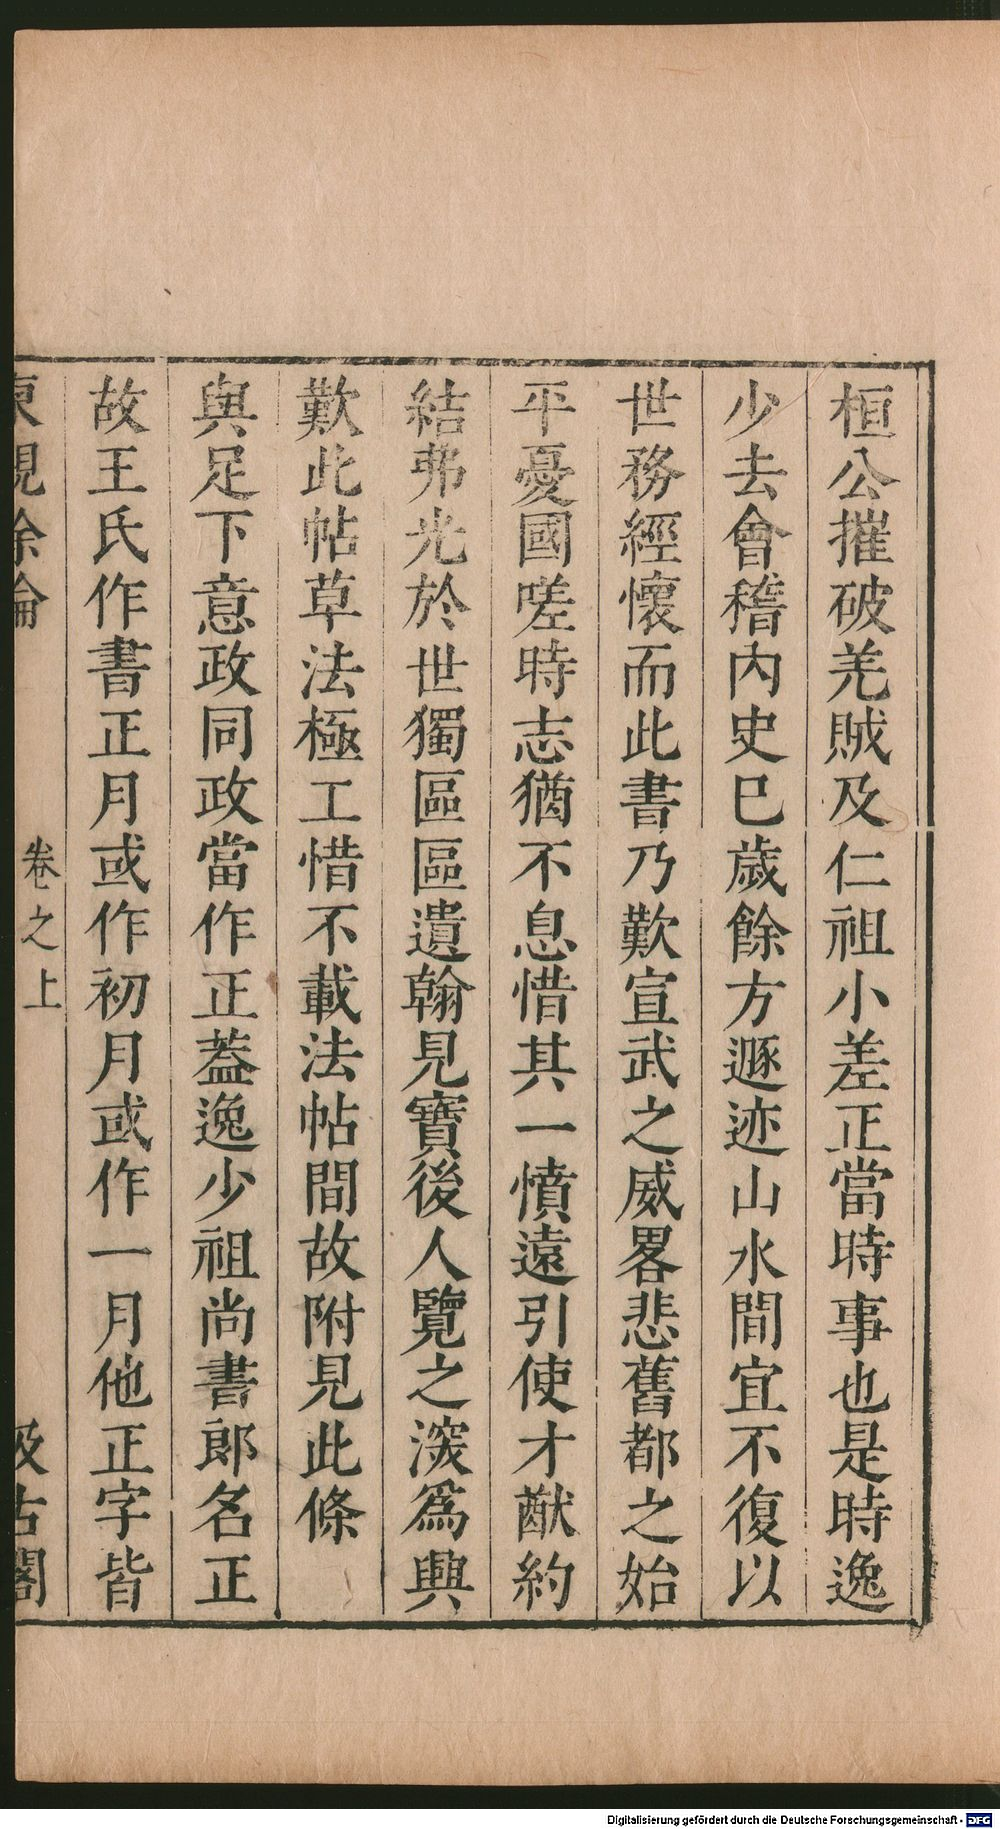 桓公摧破羌賊及仁祖小差正當時事也是時逸
少去會稽內史巳歲餘方遯迹山水間宜不復以
世務經懷而此書乃歎宣武之威畧悲舊都之始
平憂國嗟時志猶不息惜其一憤遠引使才猷約
結弗光於世獨區區遺翰見寶後人覽之深爲興
歎此帖草法極工惜不載法帖間故附見此條
與足下意政同政當作正葢逸少祖尚書郎名正
故王氏作書正月或作初月或作一月他正字皆
東觀余論
卷之上
汲古閣
Digitalisierung gefördert durch die Deutsche Forschungsgemeinschaft - DFG